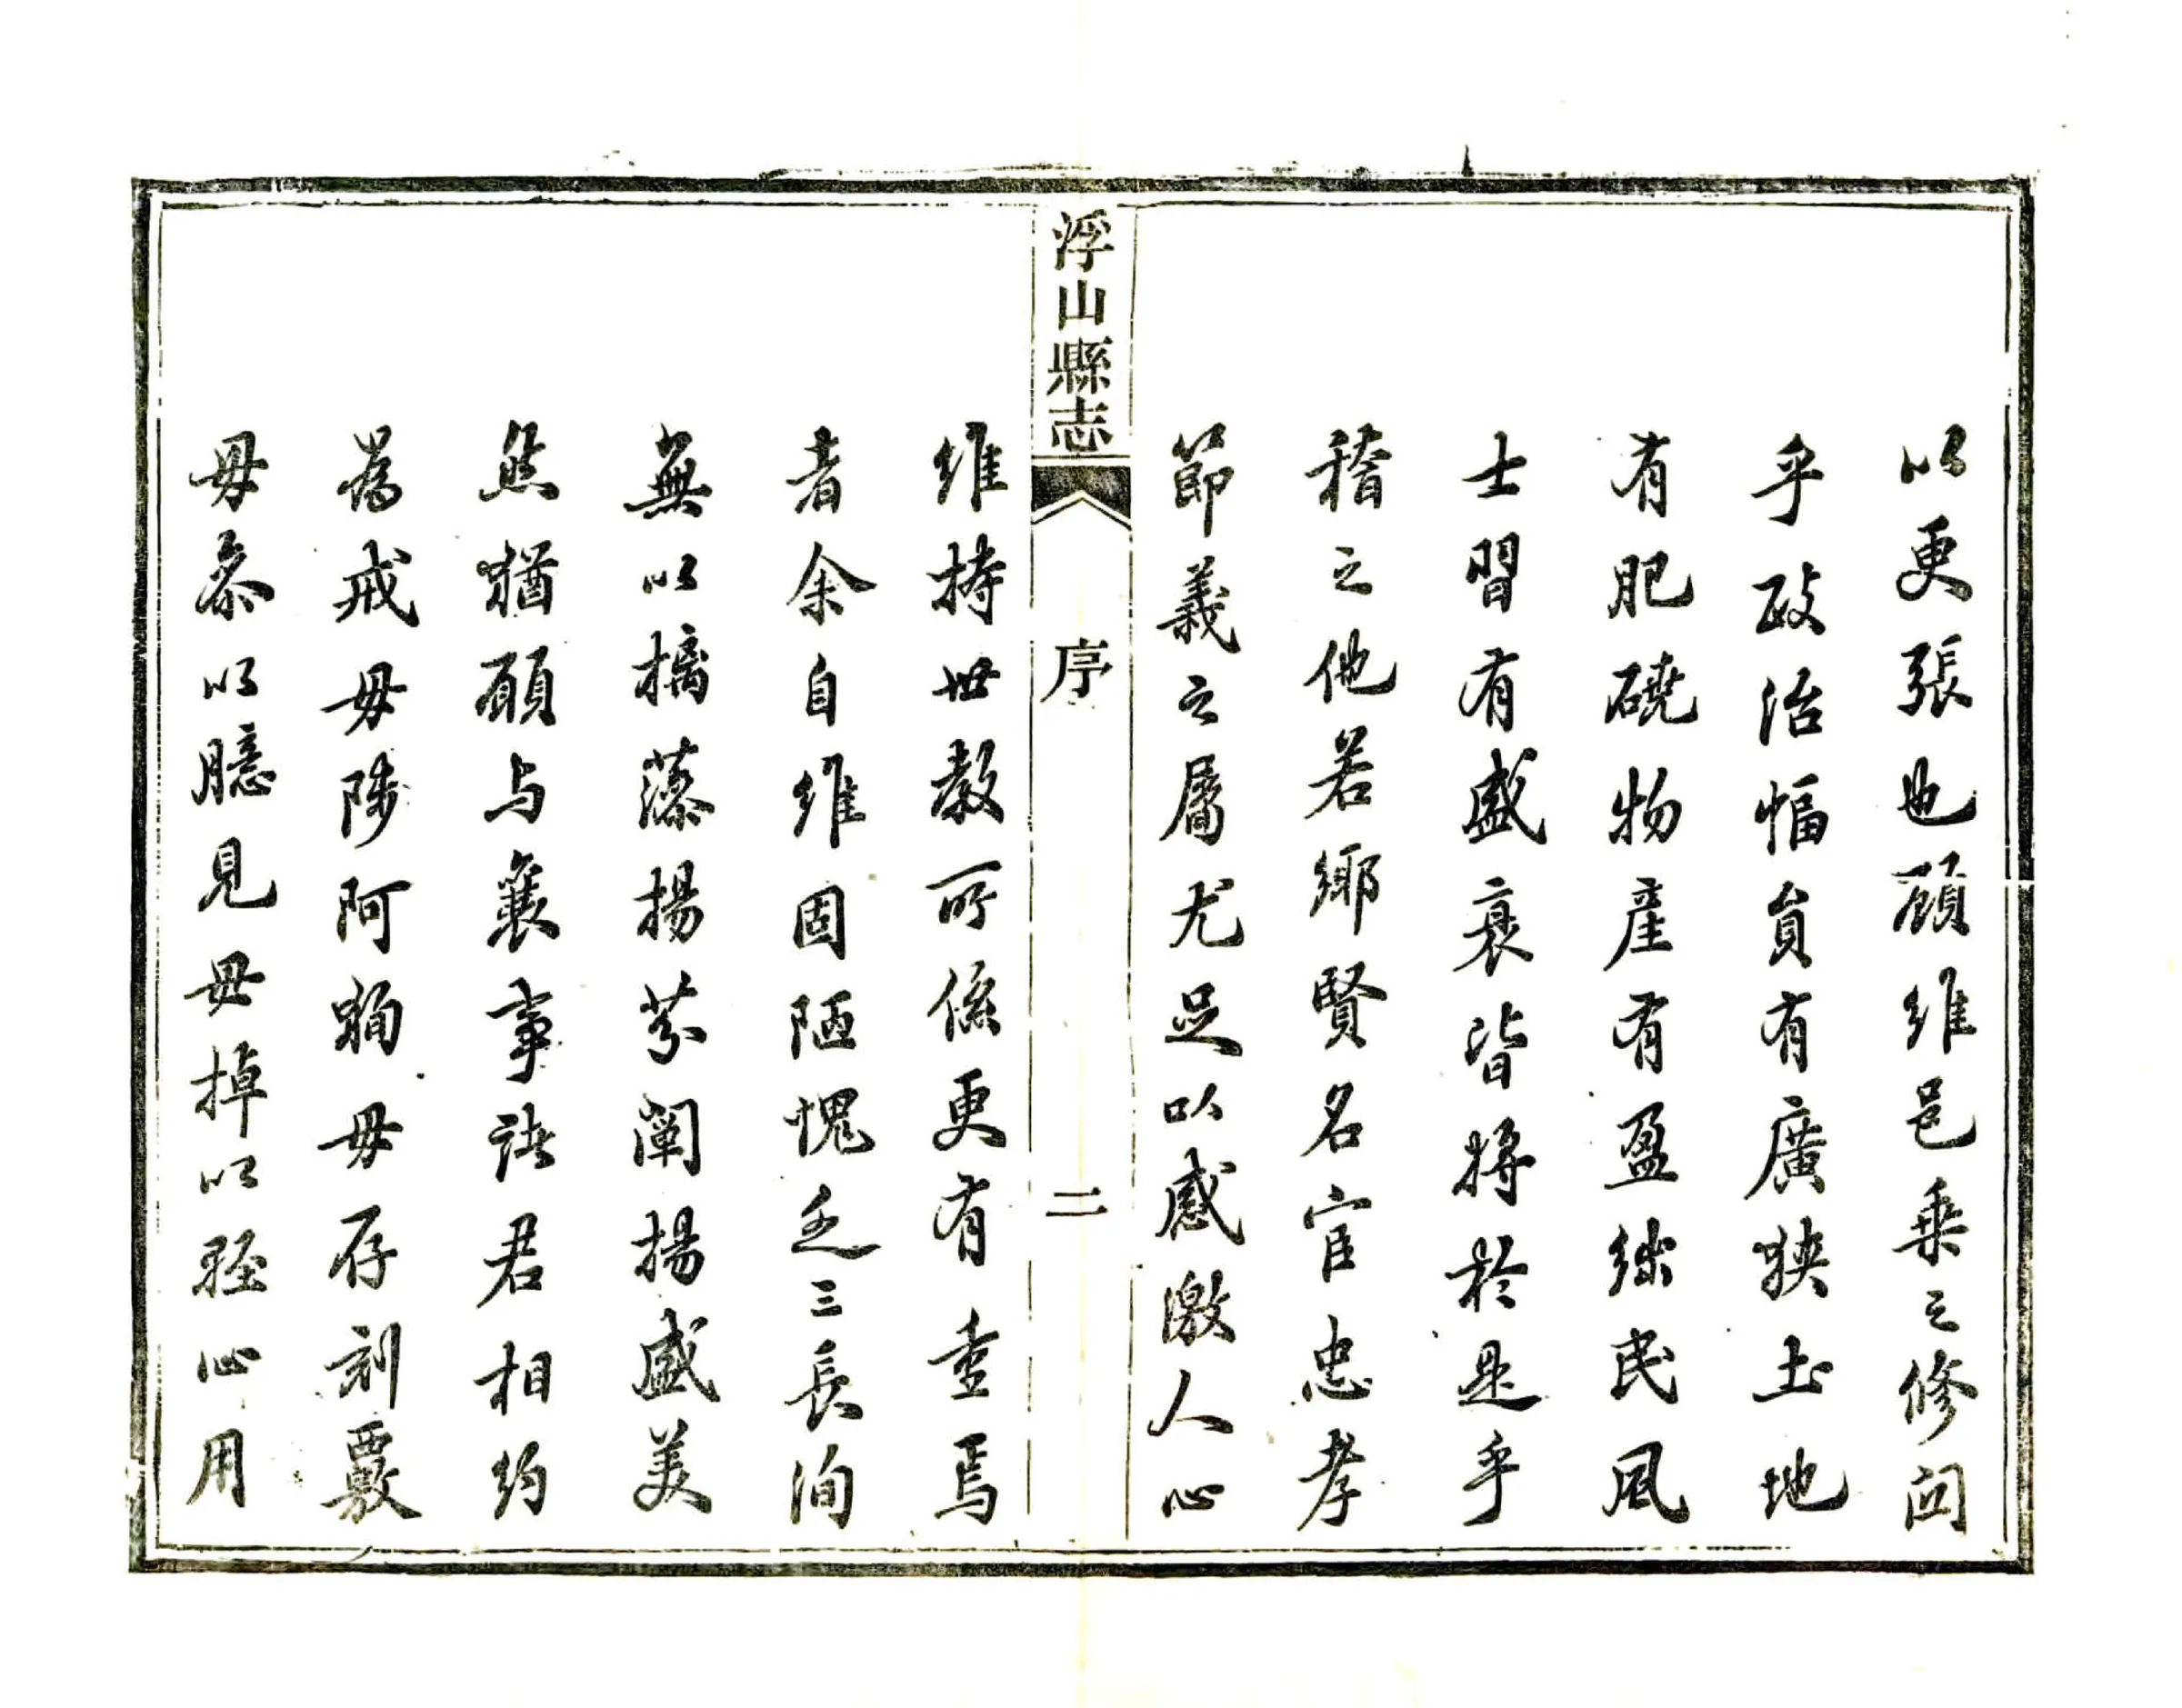 以更張也顧維邑乘之修関
乎政治幅員有廣狹土地
有肥磽物產有盈絀民風
士習有盛衰皆將於是乎
稽之他若鄉賢名宦忠孝
節義之屬尤足以感激人心
浮山縣志
序
二
維持世教所係更有重焉
者余自維固陋愧乏三長洵
無以摛藻揚芬闡揚盛美
然猶願与襄事諸君相約
為戒毋涉阿徇毋存刻覈
毋參以臆見毋掉以輕心用